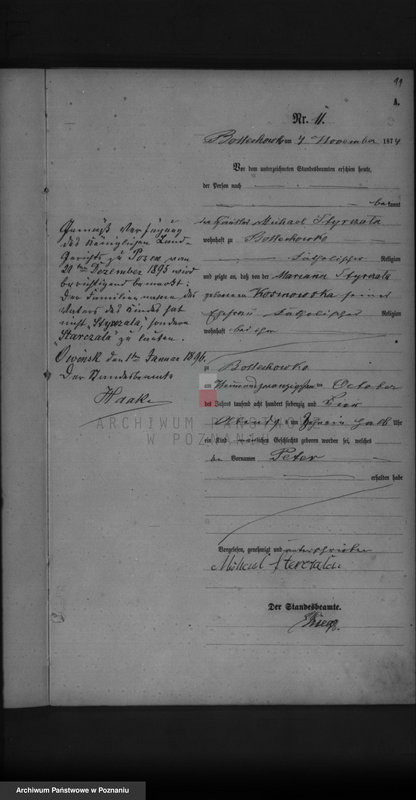 99
A.
Nr. 11.
Bolechowko am 4 November 1874
Vor dem unterzeichneten Standesbeamten erschien heute,
der Person nach
bekannt
der Häusler Michael Styrzala
wohnhaft zu Bolechowko
katholischer Religion
und zeigte an, daß von der Mariana Styrzala
geborenen Kosnowska seiner
Ehefrau katholischer Religion
wohnhaft bei ihm
zu Bolechowko
am neunundzwanzigsten October
des Jahres tausend acht hundert siebenzig und vier
Abends um halb Uhr
ein Kind männlichen Geschlechts geboren worden sei, welches
den Vornamen Peter
erhalten habe
Vorgelesen, genehmigt und unterschrieben
Michael Sterczala
Der Standesbeamte.
Gemäß Verfügung
des Königlichen Land-
Gerichts zu Posen vom
20ten Dezember 1895 wird
berichtigend bemerkt:
Der Familienname des
Vaters des Kindes hat
nicht „Styrzala“, sondern
„Starczala“ zu lauten.
Owinsk, den 1ten Januar 1896.
Der Standesbeamte
Haake
ARCHIWUM PAŃSTWOWE
W POZNANIU
Archiwum Państwowe w Poznaniu